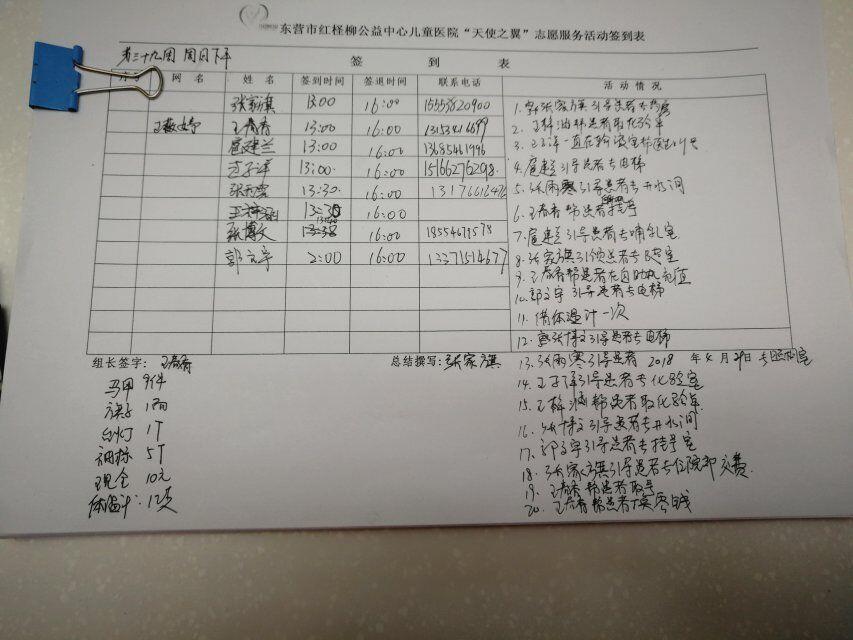 东营市红柽柳公益中心儿童医院“天使之翼”志愿服务活动签到表
第三十九周 周日下午 签 到 表
网 名 姓 名 签到时间 签退时间 联系电话 活 动 情 况
张家旗 13:00 16:00 15558820900
王春香 13:00 16:00
扈建兰 13:00 16:00 13685461996
13:00 16:00 15166276298
张雨寒 13:30 16:00
16:00
张博文 16:00 18554679578
郭文宇 2:00 16:00 13371514677
1. 张家旗引导患者去药房
2. 王梓涵帮患者取化验单
4. 扈建兰引导患者去电梯
5. 张雨寒引导患者去开水间
6. 王春香帮患者挂号
7. 扈建兰引导患者去哺乳室
8. 张家旗引领患者去
9. 王春香帮患者在自助机充值
10. 郭文宇引导患者去电梯
11. 借体温计一次
12. 张博文引导患者去电梯
组长签字: 王春香 总结撰写: 张家旗 13. 张雨寒引导患者 2018 年 4 月 29日
14. 王子泽引导患者去化验室
15. 王梓涵帮患者取化验单
16. 张博文引导患者去开水间
17. 郭文宇引导患者去挂号室
18. 张家旗引导患者去住院部交费
19. 王春香帮患者取号
20. 王春香帮患者换零钱
马甲 9件
旗子 1面
台灯 1个
胸标 5个
现金 10元
体温计: 1支